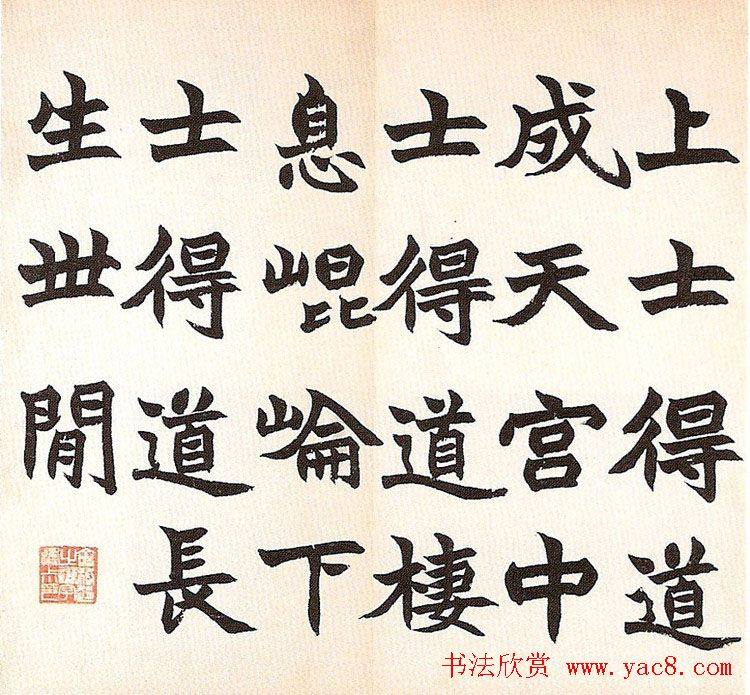 上士得道
成天宮中
士得道棲
息崐崘下
士得道長
生丗閒
书法欣赏 www.yac8.com